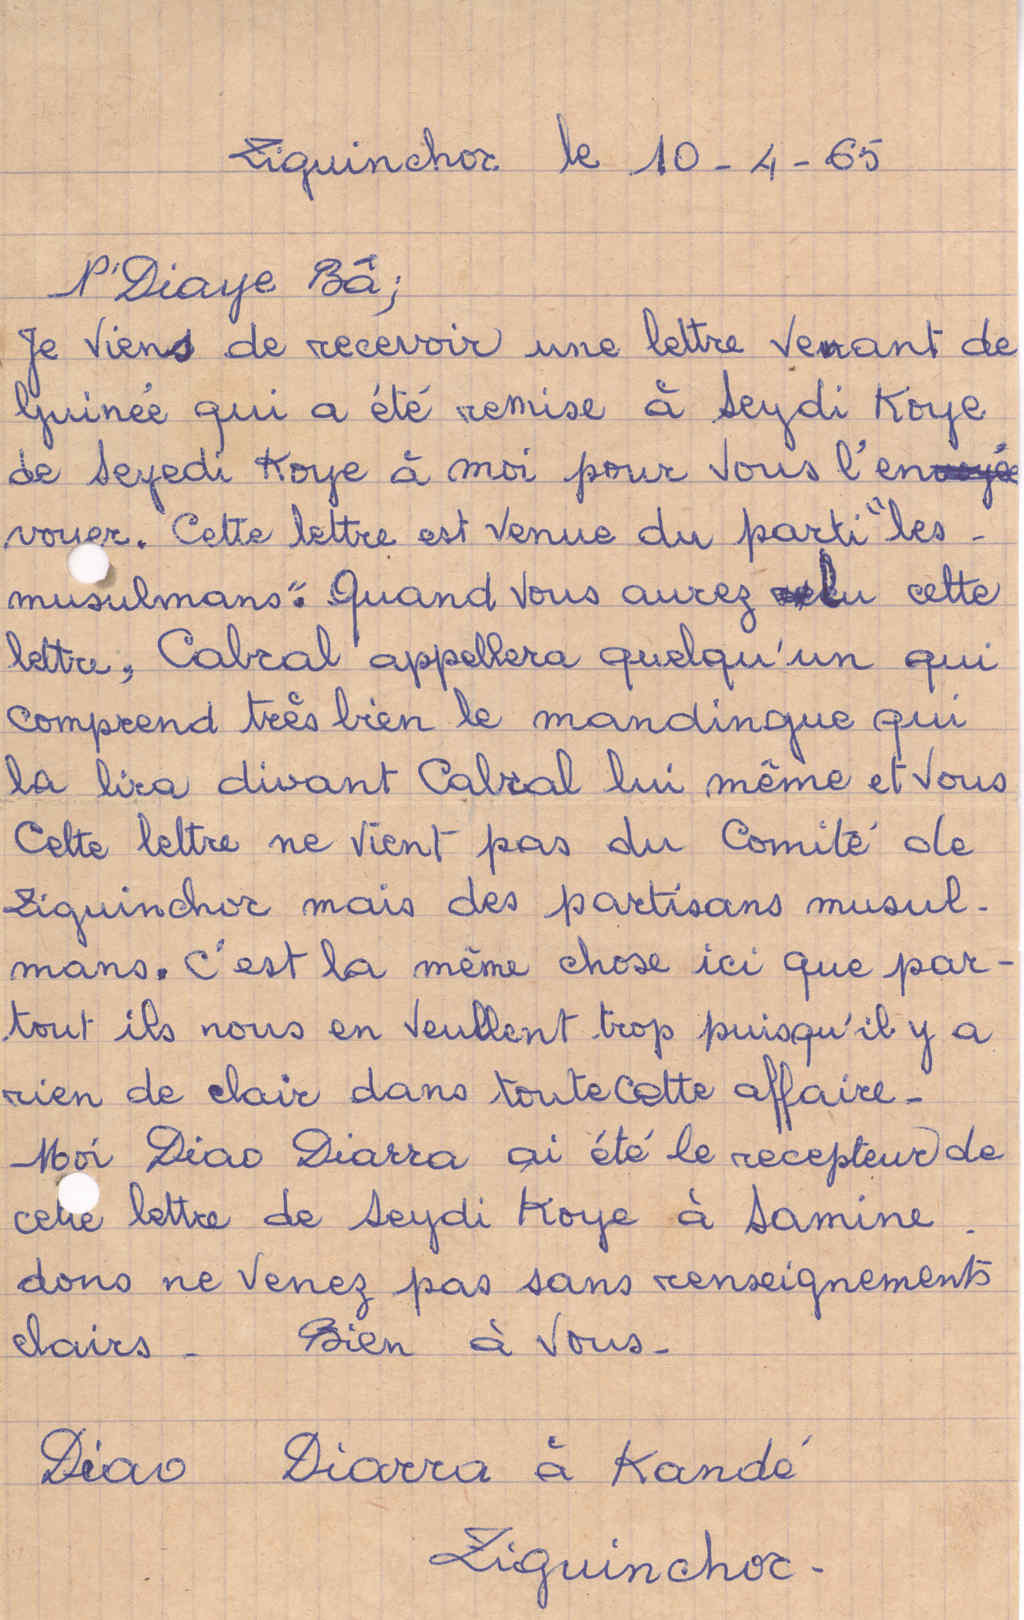 Ziguinchor le 10-4-65
N'Diaye Bâ;
Je viens de recevoir une lettre venant de
Guinée qui a été remise à Seydi Koye
de Seyedi Koye à moi pour vous l'en
voyer. Cette lettre est venue du parti "les -
musulmans". Quand vous aurez lu cette
lettre, Cabral appellera quelqu'un qui
comprend très bien le mandingue qui
la lira divant Cabral lui même et vous
Cette lettre ne vient pas du Comité de
Ziguinchor mais des partisans musul-
mans. C'est la même chose ici que par-
tout ils nous en veullent trop puisqu'il y a
rien de clair dans toute cette affaire -
Moi Diao Diarra ai été le recepteur de
cette lettre de Seydi Koye à Samine.
dons ne venez pas sans renseignements
clairs - Bien à vous -
Diao Diarra à Kandé
Ziguinchor -